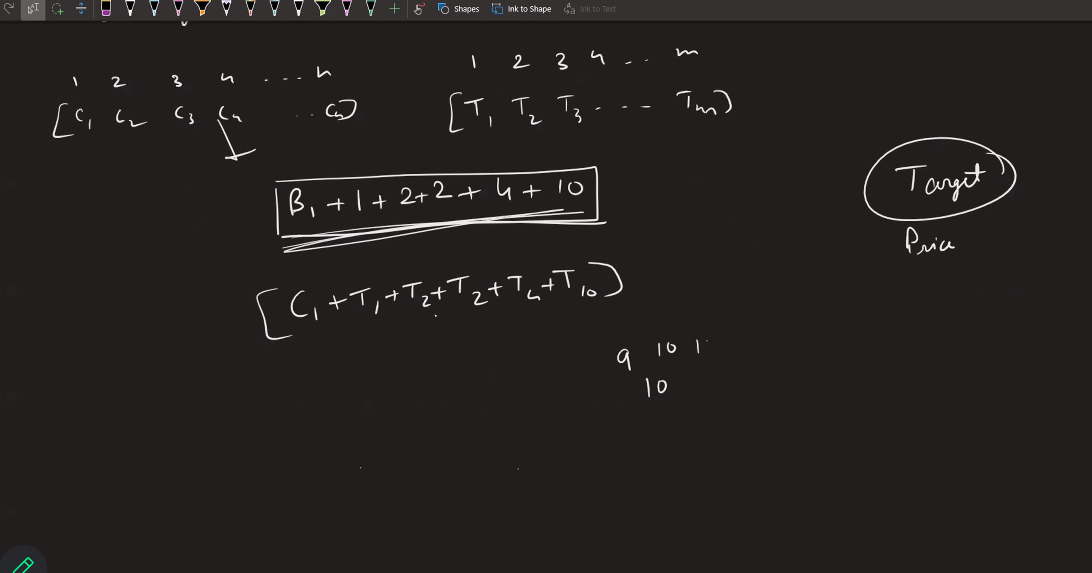 Shapes Ink to Shape Ink to Text
1 2 3 4 .... n
1 2 3 4 .. m
[C1 C2 C3 C4 .. Cn]
[T1 T2 T3 --- Tm]
Target
Price
B1 + 1 + 2 + 2 + 4 + 10
[C1 + T1 + T2 + T2 + T4 + T10]
9 10 1
10